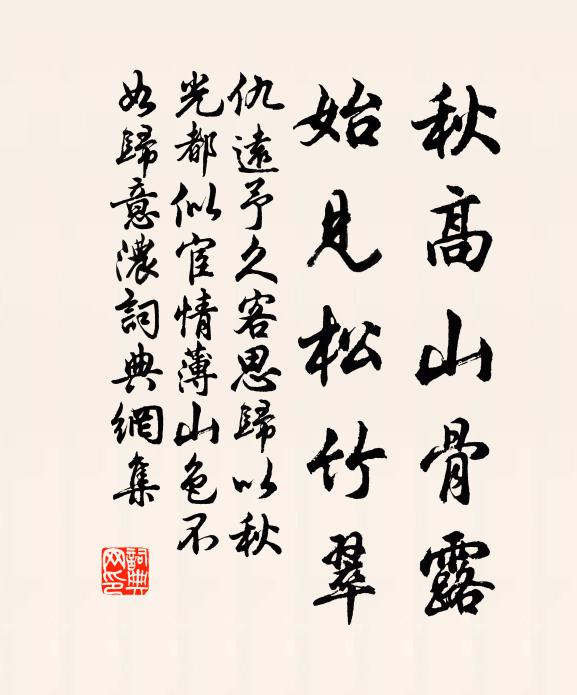 秋高山骨露
始見松竹翠
仇遠予久客思歸以秋
光都似宦情薄山色不
如歸意濃詞典網集
詞典网印